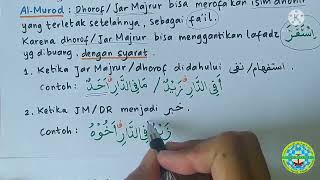 Al-Murod : Dhorof / Jar Majrur bisa merofa'kan isim dhohir
yang terletak setelahnya, sebagai fa'il.
Karena dhorof / Jar Majrur bisa menggantikan lafadz اِسْتَقَرَّ
yg dibuang. dengan syarat.
1. Ketika Jar Majrur/dhorof didahului نفى / استفهام.
Contoh : أَفِي الدَّارِ زَيْدٌ / مَا فِي الدَّارِ أَحَدٌ
2. Ketika JM/DR menjadi خبر.
Contoh : زَيْدٌ فِي الدَّارِ أَخُوْهُ